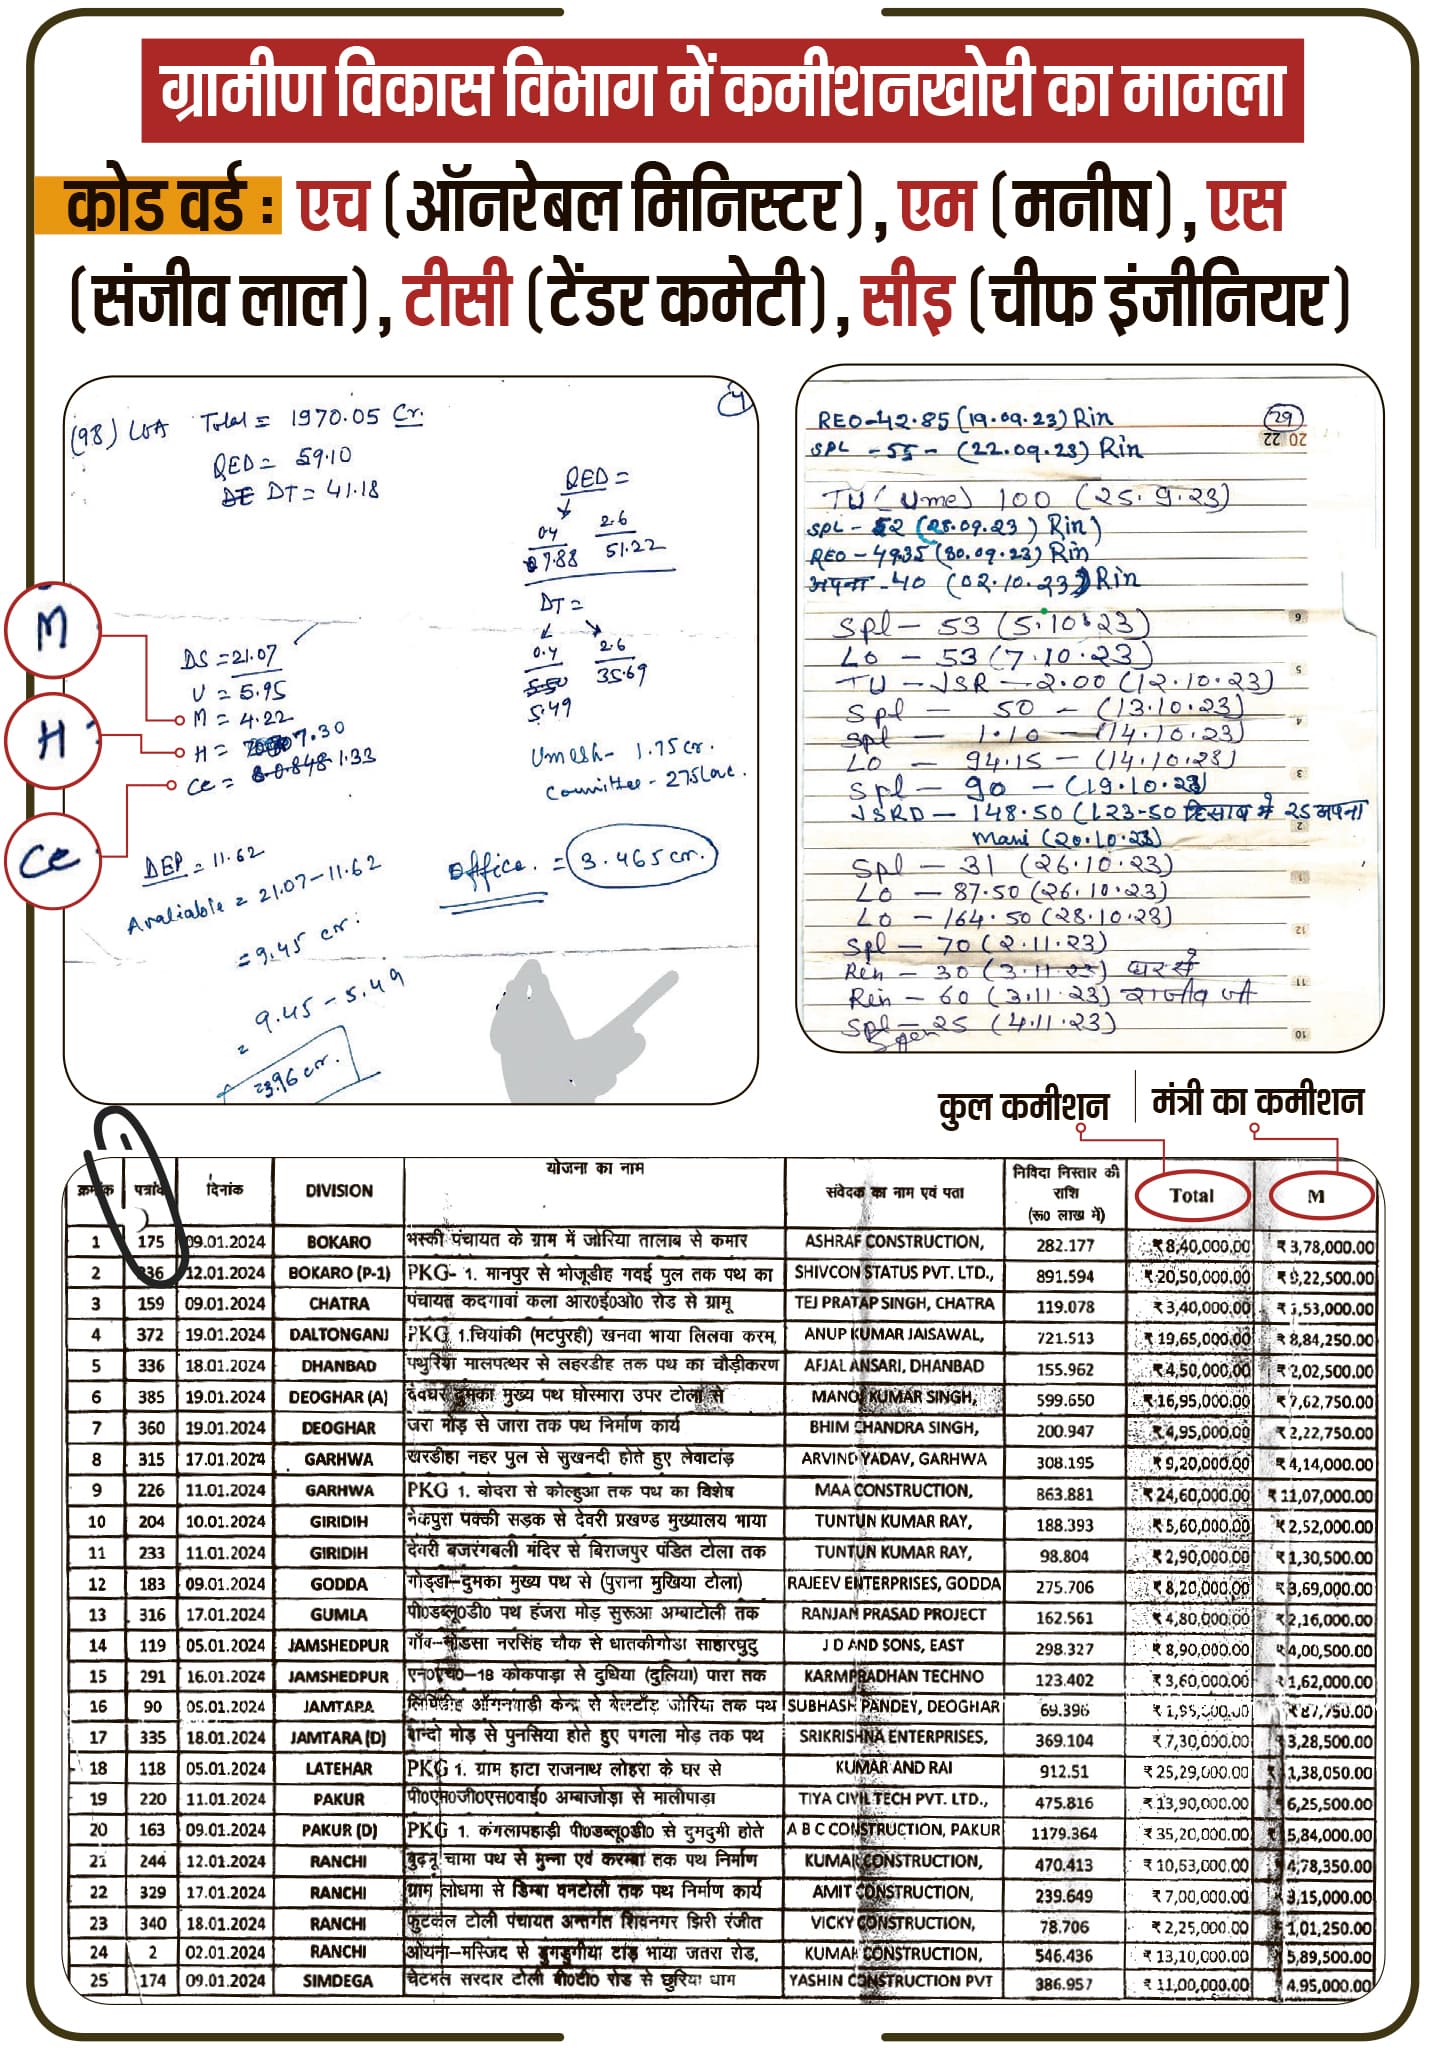 ग्रामीण विकास विभाग में कमीशनखोरी का मामला
कोड वर्ड : एच (ऑनरेबल मिनिस्टर), एम (मनीष), एस
(संजीव लाल), टीसी (टेंडर कमेटी), सीइ (चीफ इंजीनियर)
(98) LOA Total = 1970.05 Cr.
QED = 59.10
DT = 41.18
QED =
0.4 2.6
7.88 51.22
DT =
0.4 2.6
5.50 35.69
5.49
M
H
Ce
DS = 21.07
U = 5.95
M = 4.22
H = 7.30
Ce = 1.33
Umesh - 1.75 cr.
Committee - 275 Lac.
DEP = 11.62
Avaliable = 21.07-11.62
= 9.45 cr.
9.45 - 5.49
=
=3.96 cr.
Office. = 3.465 cr.
29
20 22
REO-42.85 (19.09.23) Rin
SPL - 55 - (22.09.23) Rin
TU (Ume) 100 (25.9.23)
SPL - 52 (28.09.23) Rin)
REO - 4935 (30.09.23) Rin
अपना - 40 (02.10.23) Rin
Spl - 53 (5.10.23)
Lo - 53 (7.10.23)
TU - JSR - 2.00 (12.10.23)
Spl - 50 - (13.10.23)
Spl - 1.10 - (14.10.23)
Lo - 94.15 - (14.10.23)
Spl - 90 - (19.10.23)
JSRD - 148.50 (123-50 हिसाब मे 25 अपना
Mani (20.10.23)
Spl - 31 (26.10.23)
Lo - 87.50 (26.10.23)
Lo - 164.50 (28.10.23)
Spl - 70 (2.11.23)
Ren - 30 (3.11.23) घर से
Ren - 60 (3.11.23) राजीव जी
Spl - 25 (4.11.23)
कुल कमीशन मंत्री का कमीशन
क्रमांक पत्रांक दिनांक DIVISION योजना का नाम संवेदक का नाम एवं पता निविदा निस्तार की राशि (रू० लाख में) Total M
1 175 09.01.2024 BOKARO भस्की पंचायत के ग्राम में जोरिया तालाब से कमार ASHRAF CONSTRUCTION, 282.177 ₹ 8,40,000.00 ₹ 3,78,000.00
2 336 12.01.2024 BOKARO (P-1) PKG- 1. मानपुर से भोजूडीह गवई पुल तक पथ का SHIVCON STATUS PVT. LTD., 891.594 ₹ 20,50,000.00 ₹ 9,22,500.00
3 159 09.01.2024 CHATRA पंचायत कदगावां कला आर०ई०ओ० रोड से ग्रामू TEJ PRATAP SINGH, CHATRA 119.078 ₹ 3,40,000.00 ₹ 1,53,000.00
4 372 19.01.2024 DALTONGANJ PKG 1.चियांकी (मटपुरही) खनवा भाया लिलवा करम, ANUP KUMAR JAISAWAL, 721.513 ₹ 19,65,000.00 ₹ 8,84,250.00
5 336 18.01.2024 DHANBAD पथुरिया मालपत्थर से लहरडीह तक पथ का चौड़ीकरण AFJAL ANSARI, DHANBAD 155.962 ₹ 4,50,000.00 ₹ 2,02,500.00
6 385 19.01.2024 DEOGHAR (A) देवघर दुमका मुख्य पथ घोरमारा उपर टोला से MANOJ KUMAR SINGH, 599.650 ₹ 16,95,000.00 ₹ 7,62,750.00
7 360 19.01.2024 DEOGHAR जरा मोड़ से जारा तक पथ निर्माण कार्य BHIM CHANDRA SINGH, 200.947 ₹ 4,95,000.00 ₹ 2,22,750.00
8 315 17.01.2024 GARHWA खरडीहा नहर पुल से सुखनदी होते हुए लेवाटांड़ ARVIND YADAV, GARHWA 308.195 ₹ 9,20,000.00 ₹ 4,14,000.00
9 226 11.01.2024 GARHWA PKG 1. बोदरा से कोल्हुआ तक पथ का विशेष MAA CONSTRUCTION, 863.881 ₹ 24,60,000.00 ₹ 11,07,000.00
10 204 10.01.2024 GIRIDIH नेकपुरा पक्की सड़क से देवरी प्रखण्ड मुख्यालय भाया TUNTUN KUMAR RAY, 188.393 ₹ 5,60,000.00 ₹ 2,52,000.00
11 233 11.01.2024 GIRIDIH देवरी बजरंगबली मंदिर से बिराजपुर पंडित टोला तक TUNTUN KUMAR RAY, 98.804 ₹ 2,90,000.00 ₹ 1,30,500.00
12 183 09.01.2024 GODDA गोड्डा-दुमका मुख्य पथ से (पुराना मुखिया टोला) RAJEEV ENTERPRISES, GODDA 275.706 ₹ 8,20,000.00 ₹ 3,69,000.00
13 316 17.01.2024 GUMLA पी०डब्लू०डी० पथ हंजरा मोड़ सुरूआ अम्बाटोली तक RANJAN PRASAD PROJECT 162.561 ₹ 4,80,000.00 ₹ 2,16,000.00
14 119 05.01.2024 JAMSHEDPUR गाँव-भोडसा नरसिंह चौक से धातकीगोडा साहारघुदु J D AND SONS, EAST 298.327 ₹ 8,90,000.00 ₹ 4,00,500.00
15 291 16.01.2024 JAMSHEDPUR एन०एच०-18 कोकपाड़ा से दुधिया (दुलिया) पारा तक KARMPRADHAN TECHNO 123.402 ₹ 3,60,000.00 ₹ 1,62,000.00
16 90 05.01.2024 JAMTARA ऑगनवाड़ी केन्द्र से बेलटाँड़ जोरिया तक पथ SUBHASH PANDEY, DEOGHAR 69.396 ₹ 1,95,000.00 ₹ 87,750.00
17 335 18.01.2024 JAMTARA (D) बान्दो मोड़ से पुनसिया होते हुए पगला मोड़ तक पथ SRIKRISHNA ENTERPRISES, 369.104 ₹ 7,30,000.00 ₹ 3,28,500.00
18 118 05.01.2024 LATEHAR PKG 1. ग्राम हाटा राजनाथ लोहरा के घर से KUMAR AND RAI 912.51 ₹ 25,29,000.00 1,38,050.00
19 220 11.01.2024 PAKUR पी०एम०जी०एस०वाई० अम्बाजोड़ा से मालीपाड़ा TIYA CIVIL TECH PVT. LTD., 475.816 ₹ 13,90,000.00 ₹ 6,25,500.00
20 163 09.01.2024 PAKUR (D) PKG 1. कंगलापहाड़ी पी०डब्लू०डी० से दुमदुमी होते A B C CONSTRUCTION, PAKUR 1179.364 ₹ 35,20,000.00 5,84,000.00
21 244 12.01.2024 RANCHI बुढ़मू चामा पथ से मुन्ना एवं करम्बा तक पथ निर्माण KUMAR CONSTRUCTION, 470.413 ₹ 10,63,000.00 4,78,350.00
22 329 17.01.2024 RANCHI ग्राम लोधमा से डिम्बा वनटोली तक पथ निर्माण कार्य AMIT CONSTRUCTION, 239.649 ₹ 7,00,000.00 3,15,000.00
23 340 18.01.2024 RANCHI फुटकल टोली पंचायत अन्तर्गत शिवनगर झिरी रंजीत VICKY CONSTRUCTION, 78.706 ₹ 2,25,000.00 1,01,250.00
24 2 02.01.2024 RANCHI ओयना-मस्जिद से डुंगडुगीया टांड़ भाया जतरा रोड, KUMAR CONSTRUCTION, 546.436 ₹ 13,10,000.00 5,89,500.00
25 174 09.01.2024 SIMDEGA सरदार टोली पी०टी० रोड से छुरिया धाम YASHIN CONSTRUCTION PVT 386.957 ₹ 11,00,000.00 4,95,000.00